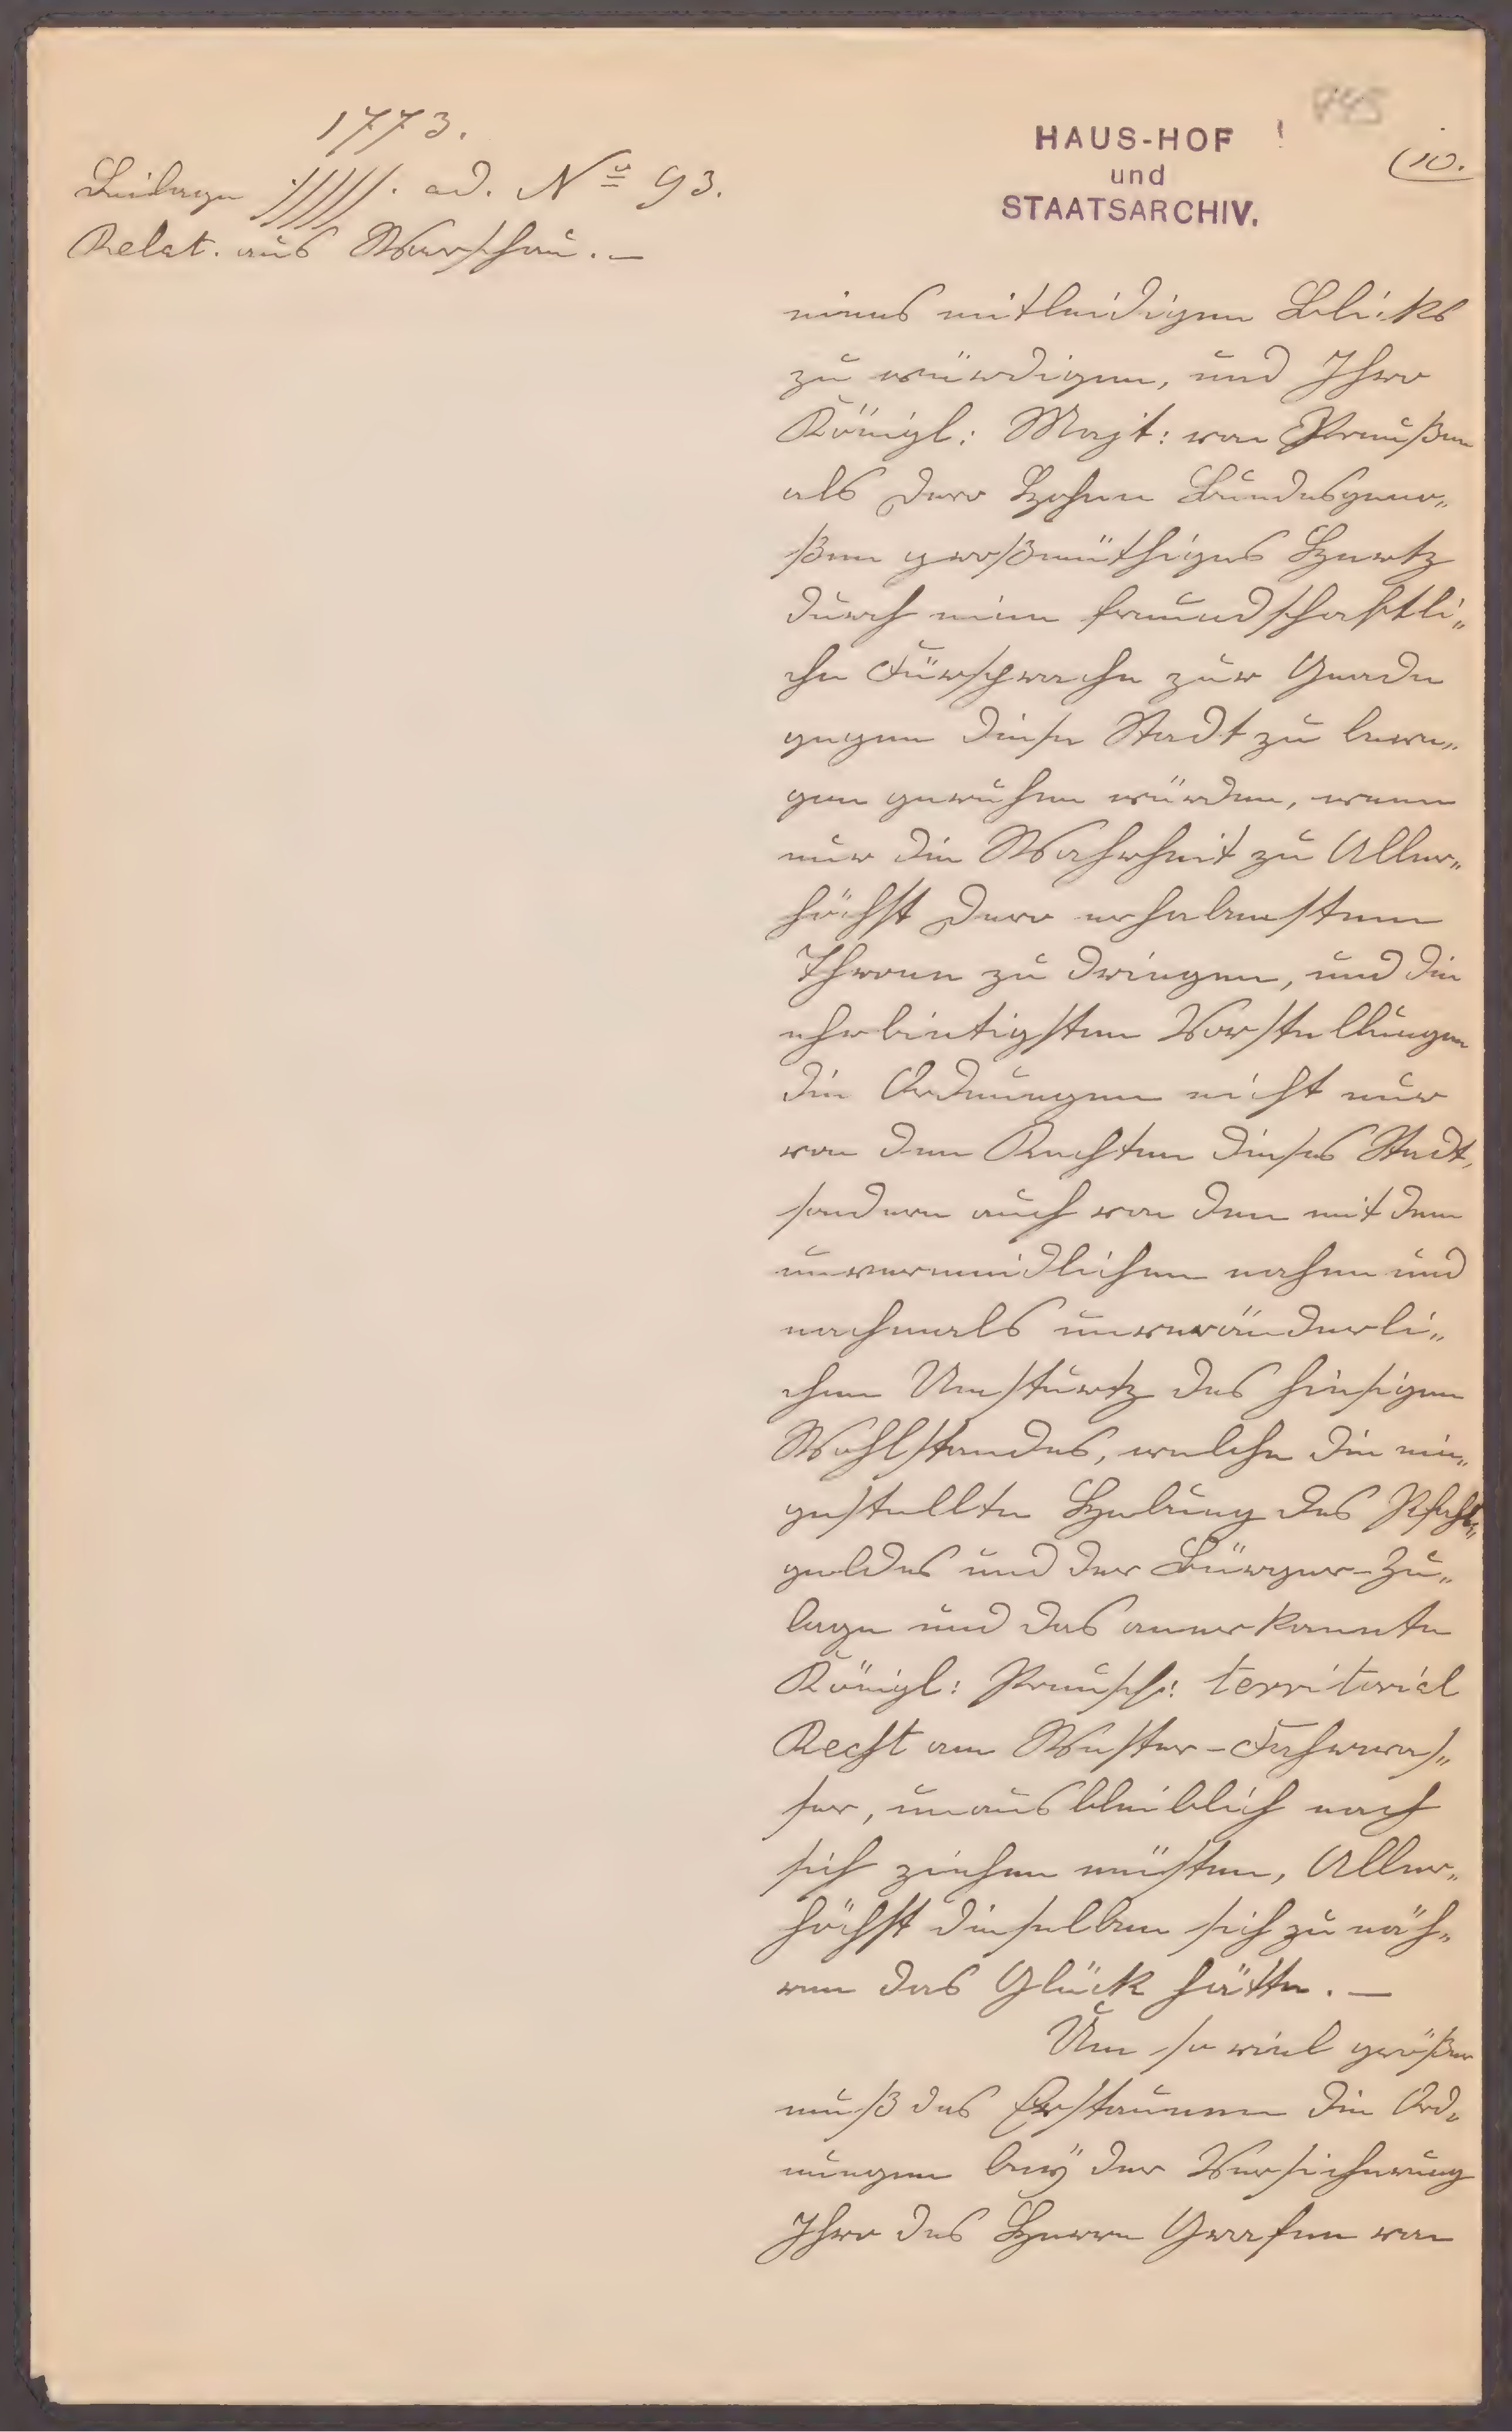 1773.
Beilage ///// . ad. No 93.
Relat. aus Warschau. —
HAUS-HOF
und
STAATSARCHIV.
(10.
eines mitleidigen Blicks
zu würdigen, und Ihro
Königl: Majt: von Preußen
als Dero Hohen Bundesgeno„
ßen großmüthiges Hertz
durch eine freundschaftli„
che Fürsprache zur Gnade
gegen diese Stadt zu bewe„
gen geruhen würden, wenn
nur die Wahrheit zu Aller„
höchst Dero erhabensten
Throne zu dringen, und die
ehrbietigsten Vorstellungen
die Ordnungen nicht nur
von den Rechten dieses Stadt,
sondern auch von den mit dem
unvermeidlichen nahen und
nachmals unveränderli„
chen Umsturtz des hiesigen
Wohlstandes, welche die ein„
gestellte Hebung des Pfahl„
geldes und der Bürger-Zu„
lage und das anerkannte
Königl: Preusch: territorial
Recht am Wester-Fahrwas„
ser, unausbleiblich nach
sich ziehen müsten, Aller„
höchst dieselben sich zu näh„
ren das Glück hätte. —
Um so viel größer
muß das Erstaunen die Ord„
nungen beÿ der Versicherung
Ihro des Herrn Grafen von